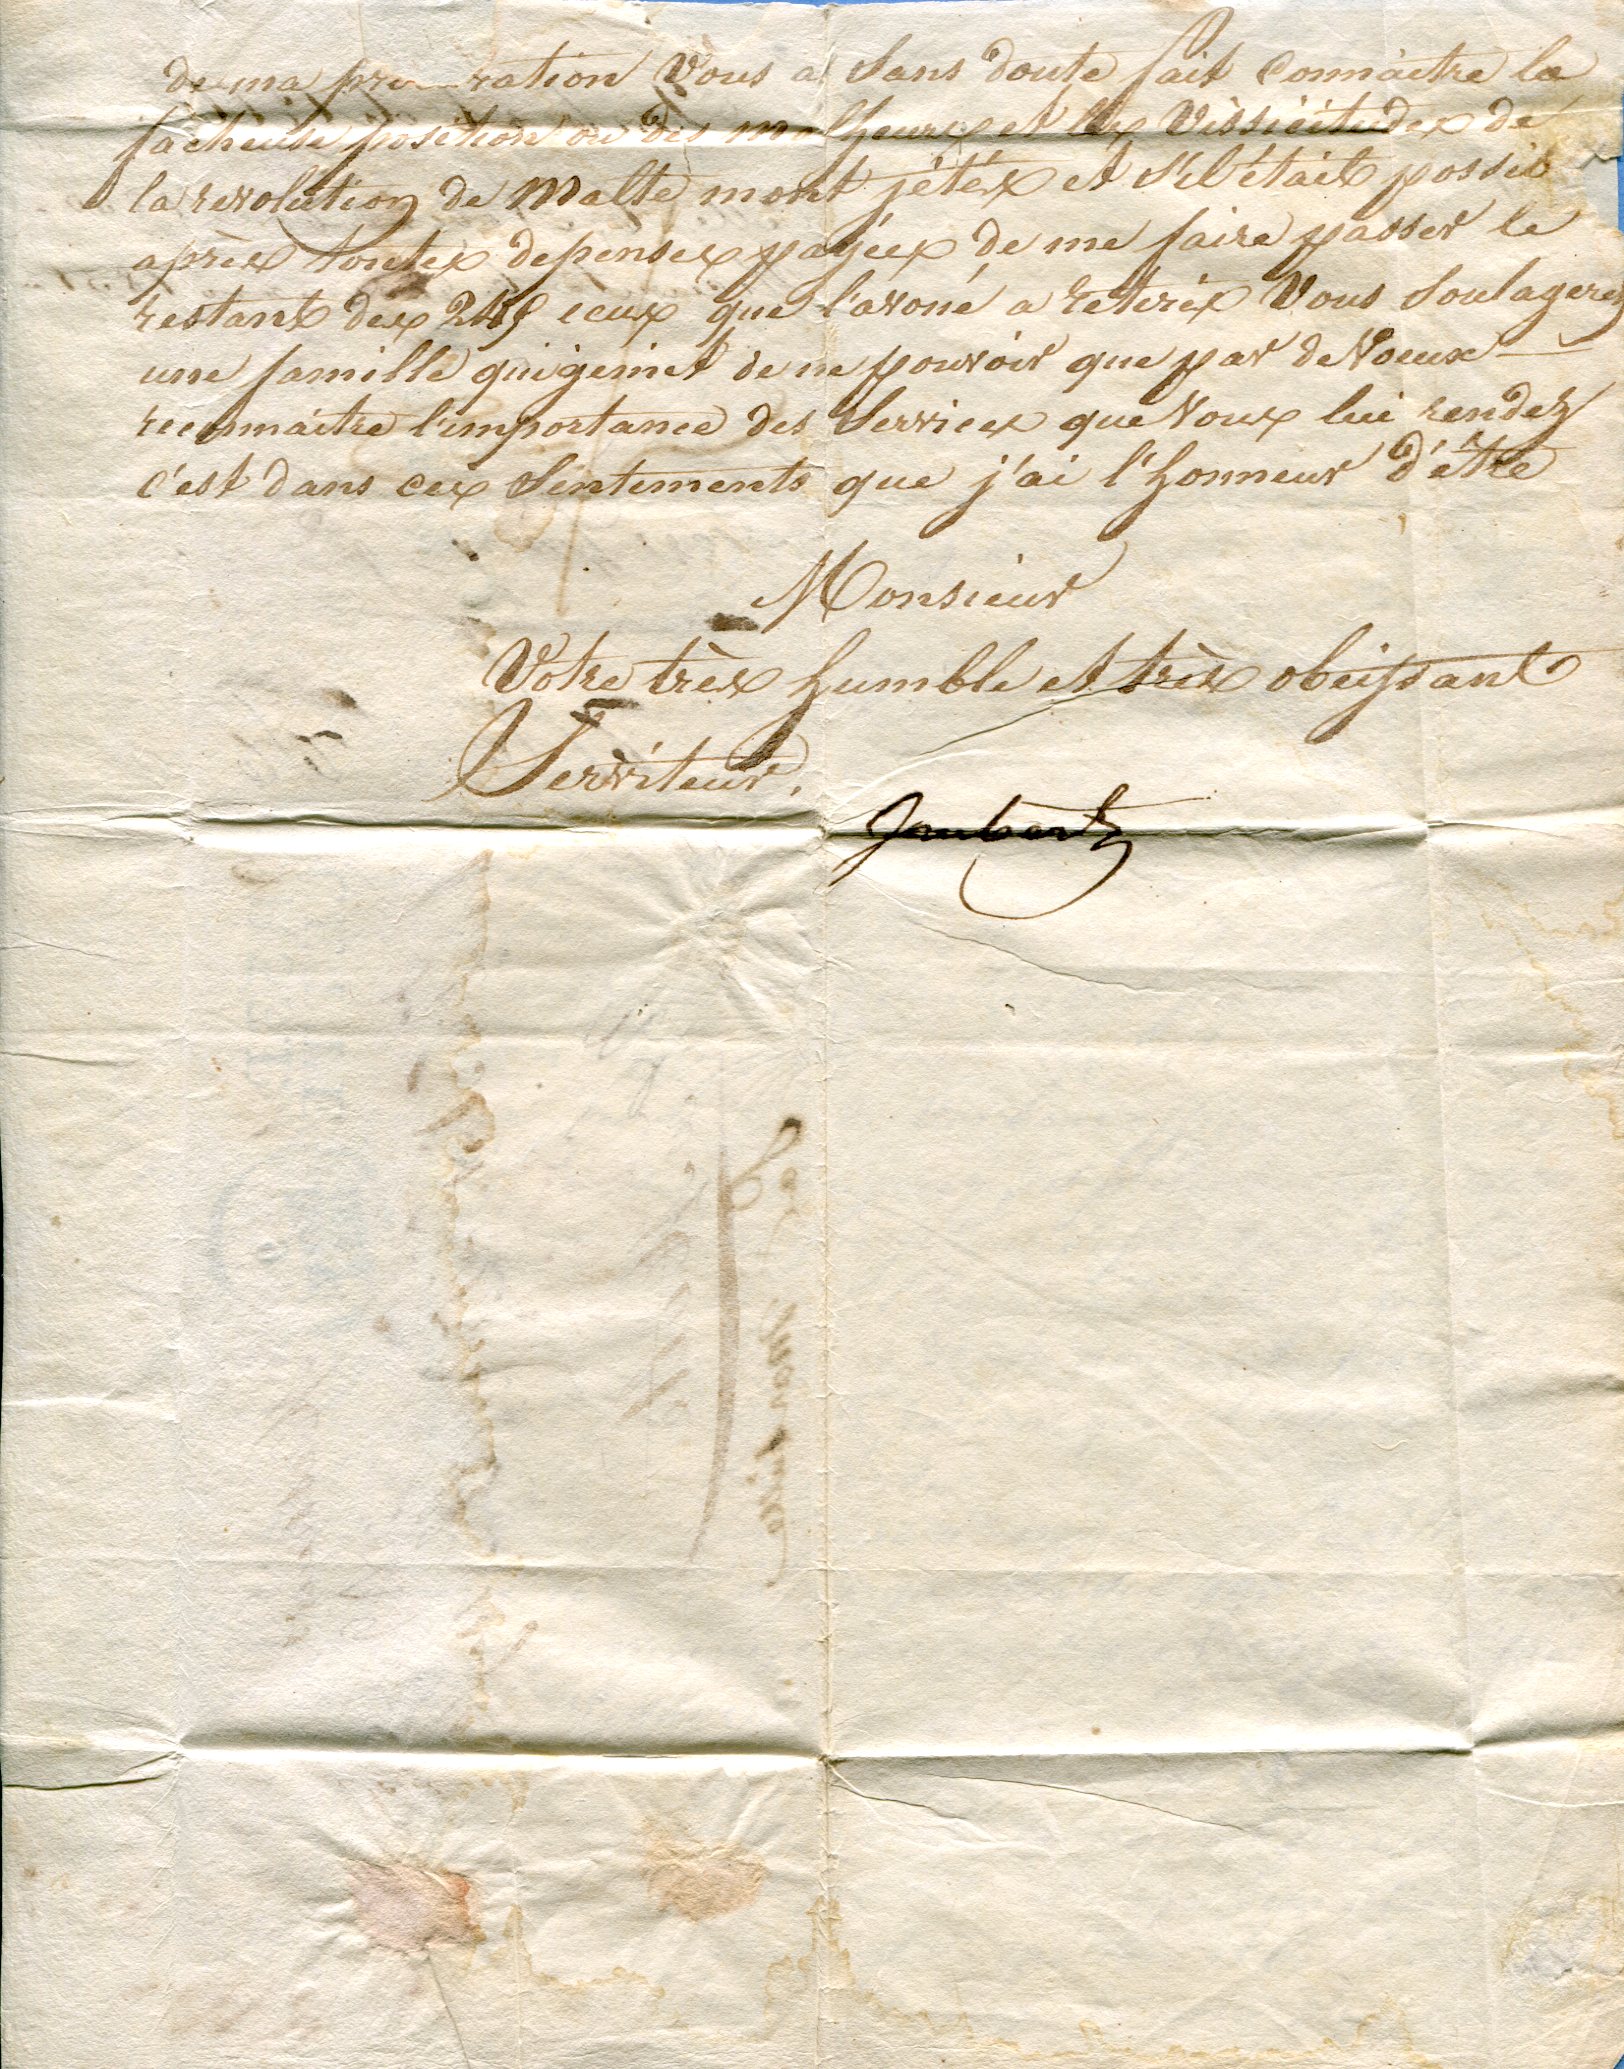 de ma procuration Vous a Sans doute fait Connaitre la
facheuse position ou des malheurs et les Vissicitudes de
la revolution de Malte mont jétés et S'il était possib
après toutes depenses payées de me faire passer le
restant des ecus que l'avoué a retirés Vous Soulagerez
une famille qui gemit de ne pouvoir que par de Voeux
reconnaitre l'importance des Services que Vous lui rendez
C'est dans ces Sentiments que j'ai l'honneur d'être
Monsieur
Votre très humble et très obeissant
Serviteur.
Joubert